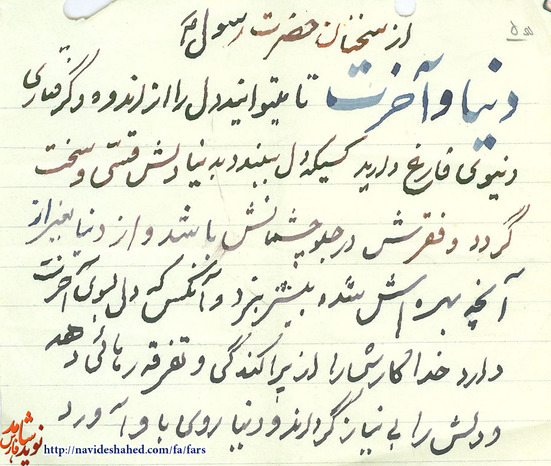 از سخنان حضرت رسول ص
دنیا و آخرت تا میتوانید دل را از اندوه و گرفتاری
دنیوی فارغ دارید کسیکه دل ببندد بدنیا دلش قسّی و سخت
گردد و فقرش در جلو چشمانش باشد و از دنیا بغیر از
آنچه بهره اش شده بیشتر نبرد و آنکس که دل بسوی آخرت
دارد خدا کارش را از پراکندگی و تفرقه رهائی دهد
و دلش را بی نیاز گرداند و دنیا روی با و آورد
نوید شاهد فارس
http://navideshahed.com/fa/fars